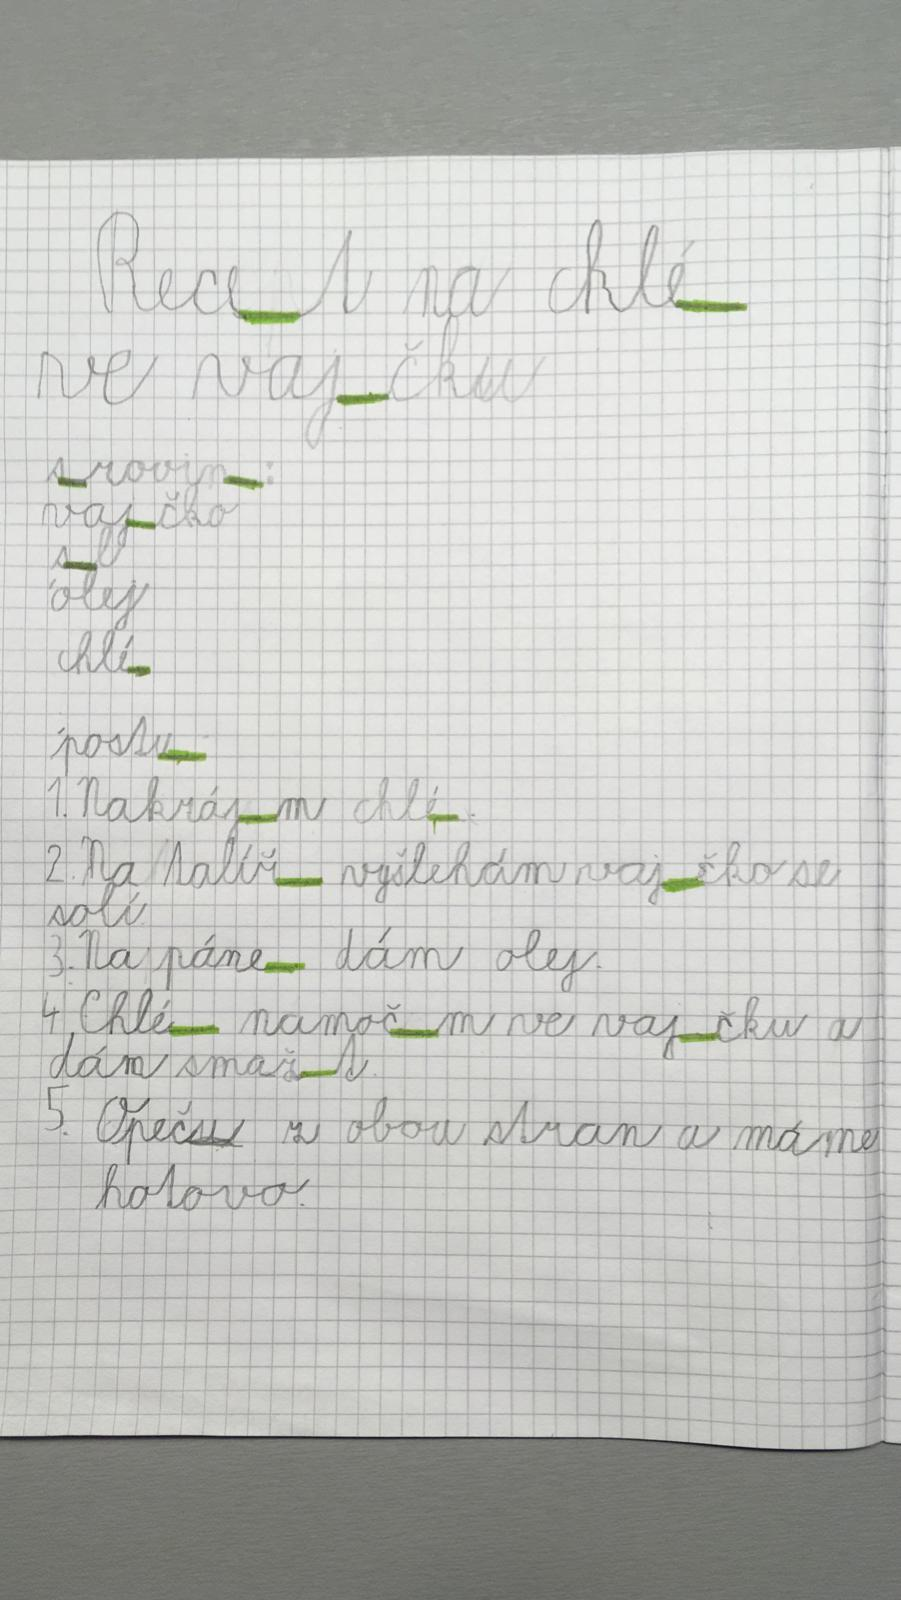 Rece_t na chlé_
ve vaj_čku
s_rovin_:
vaj_čko
s_l
olej
chlé_
postu_
1. Nakráj_m chlé_.
2. Na talíř_ vyšlehám vaj_čko se
solí.
3. Na páne_ dám olej.
4. Chlé_ namoč_m ve vaj_čku a
dám smaž_t.
5. Opeču z obou stran a máme
hotovo.